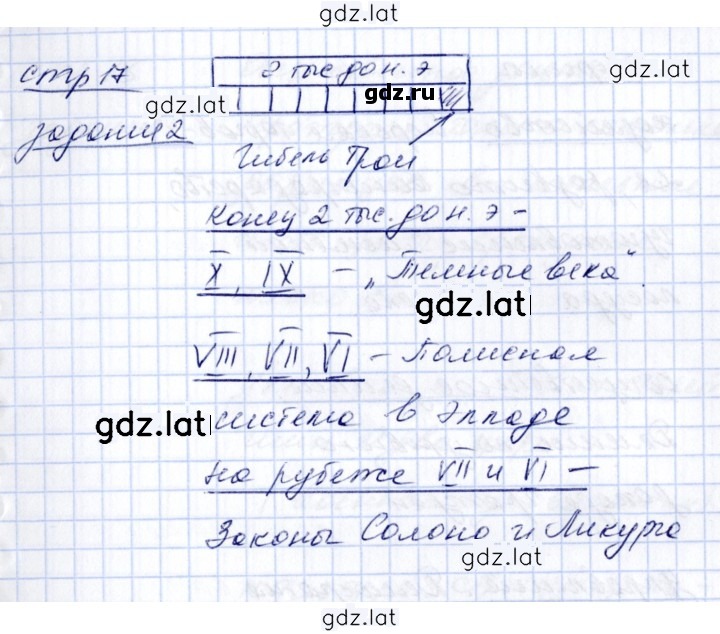 gdz.lat
стр 17
2 тыс до н. э
gdz.ru
gdz.lat
gdz.lat
задание 2
Гибель Трои
Конец 2 тыс. до н. э –
X, IX – „Темные века“
gdz.lat
VIII, VII, VI – Полисная
система в Элладе
gdz.lat
на рубеже VII и VI –
Законы Солона и Ликурга
gdz.lat
gdz.lat